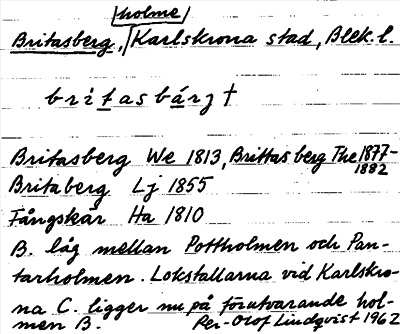 holme
Britasberg, Karlskrona stad, Blek. l.
britasbárj †
Britasberg We 1813, Brittasberg The 1877-
1882
Britaberg Lj 1855
Fångskär Ha 1810
B. låg mellan Pottholmen och Pan-
tarholmen. Lokstallarna vid Karlskro-
na C. ligger nu på förutvarande hol-
men B.
Per-Olof Lindqvist 1962